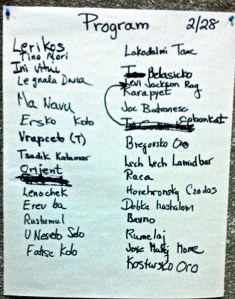 Program 2/28
Lerikos
Tino Mori
Ini Vitui
Le gnala Dana
Ma Navu
Ersko Kolo
Vrapceto (T)
Tzadik Katamar
Orient
Lenochek
Erev ba
Rustemul
U Neseto Selo
Fatise Kolo
Belasicko
Levi Jackson Rag
Karapyet
Joe Badrasnese
Bregovsko Oro
Lech Lech Lamidbar
Raca
Horehronsky Czadas
Debka hashalom
Bavno
Rumelaj
Jove Malaj Mome
Kostursko Oro